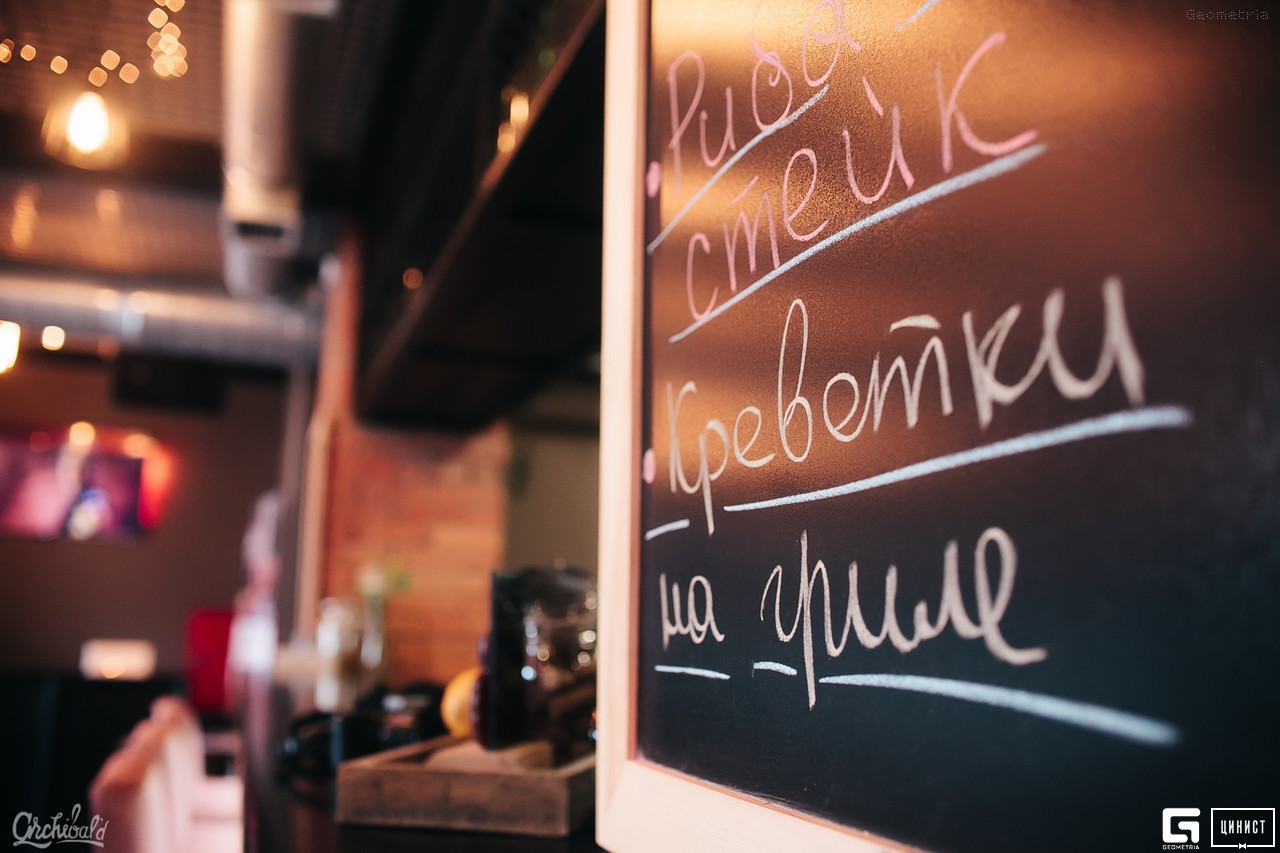 Geometria
Риба
стейк
Креветки
на гриле
Archibald
GEOMETRIA
ЦИНИСТ